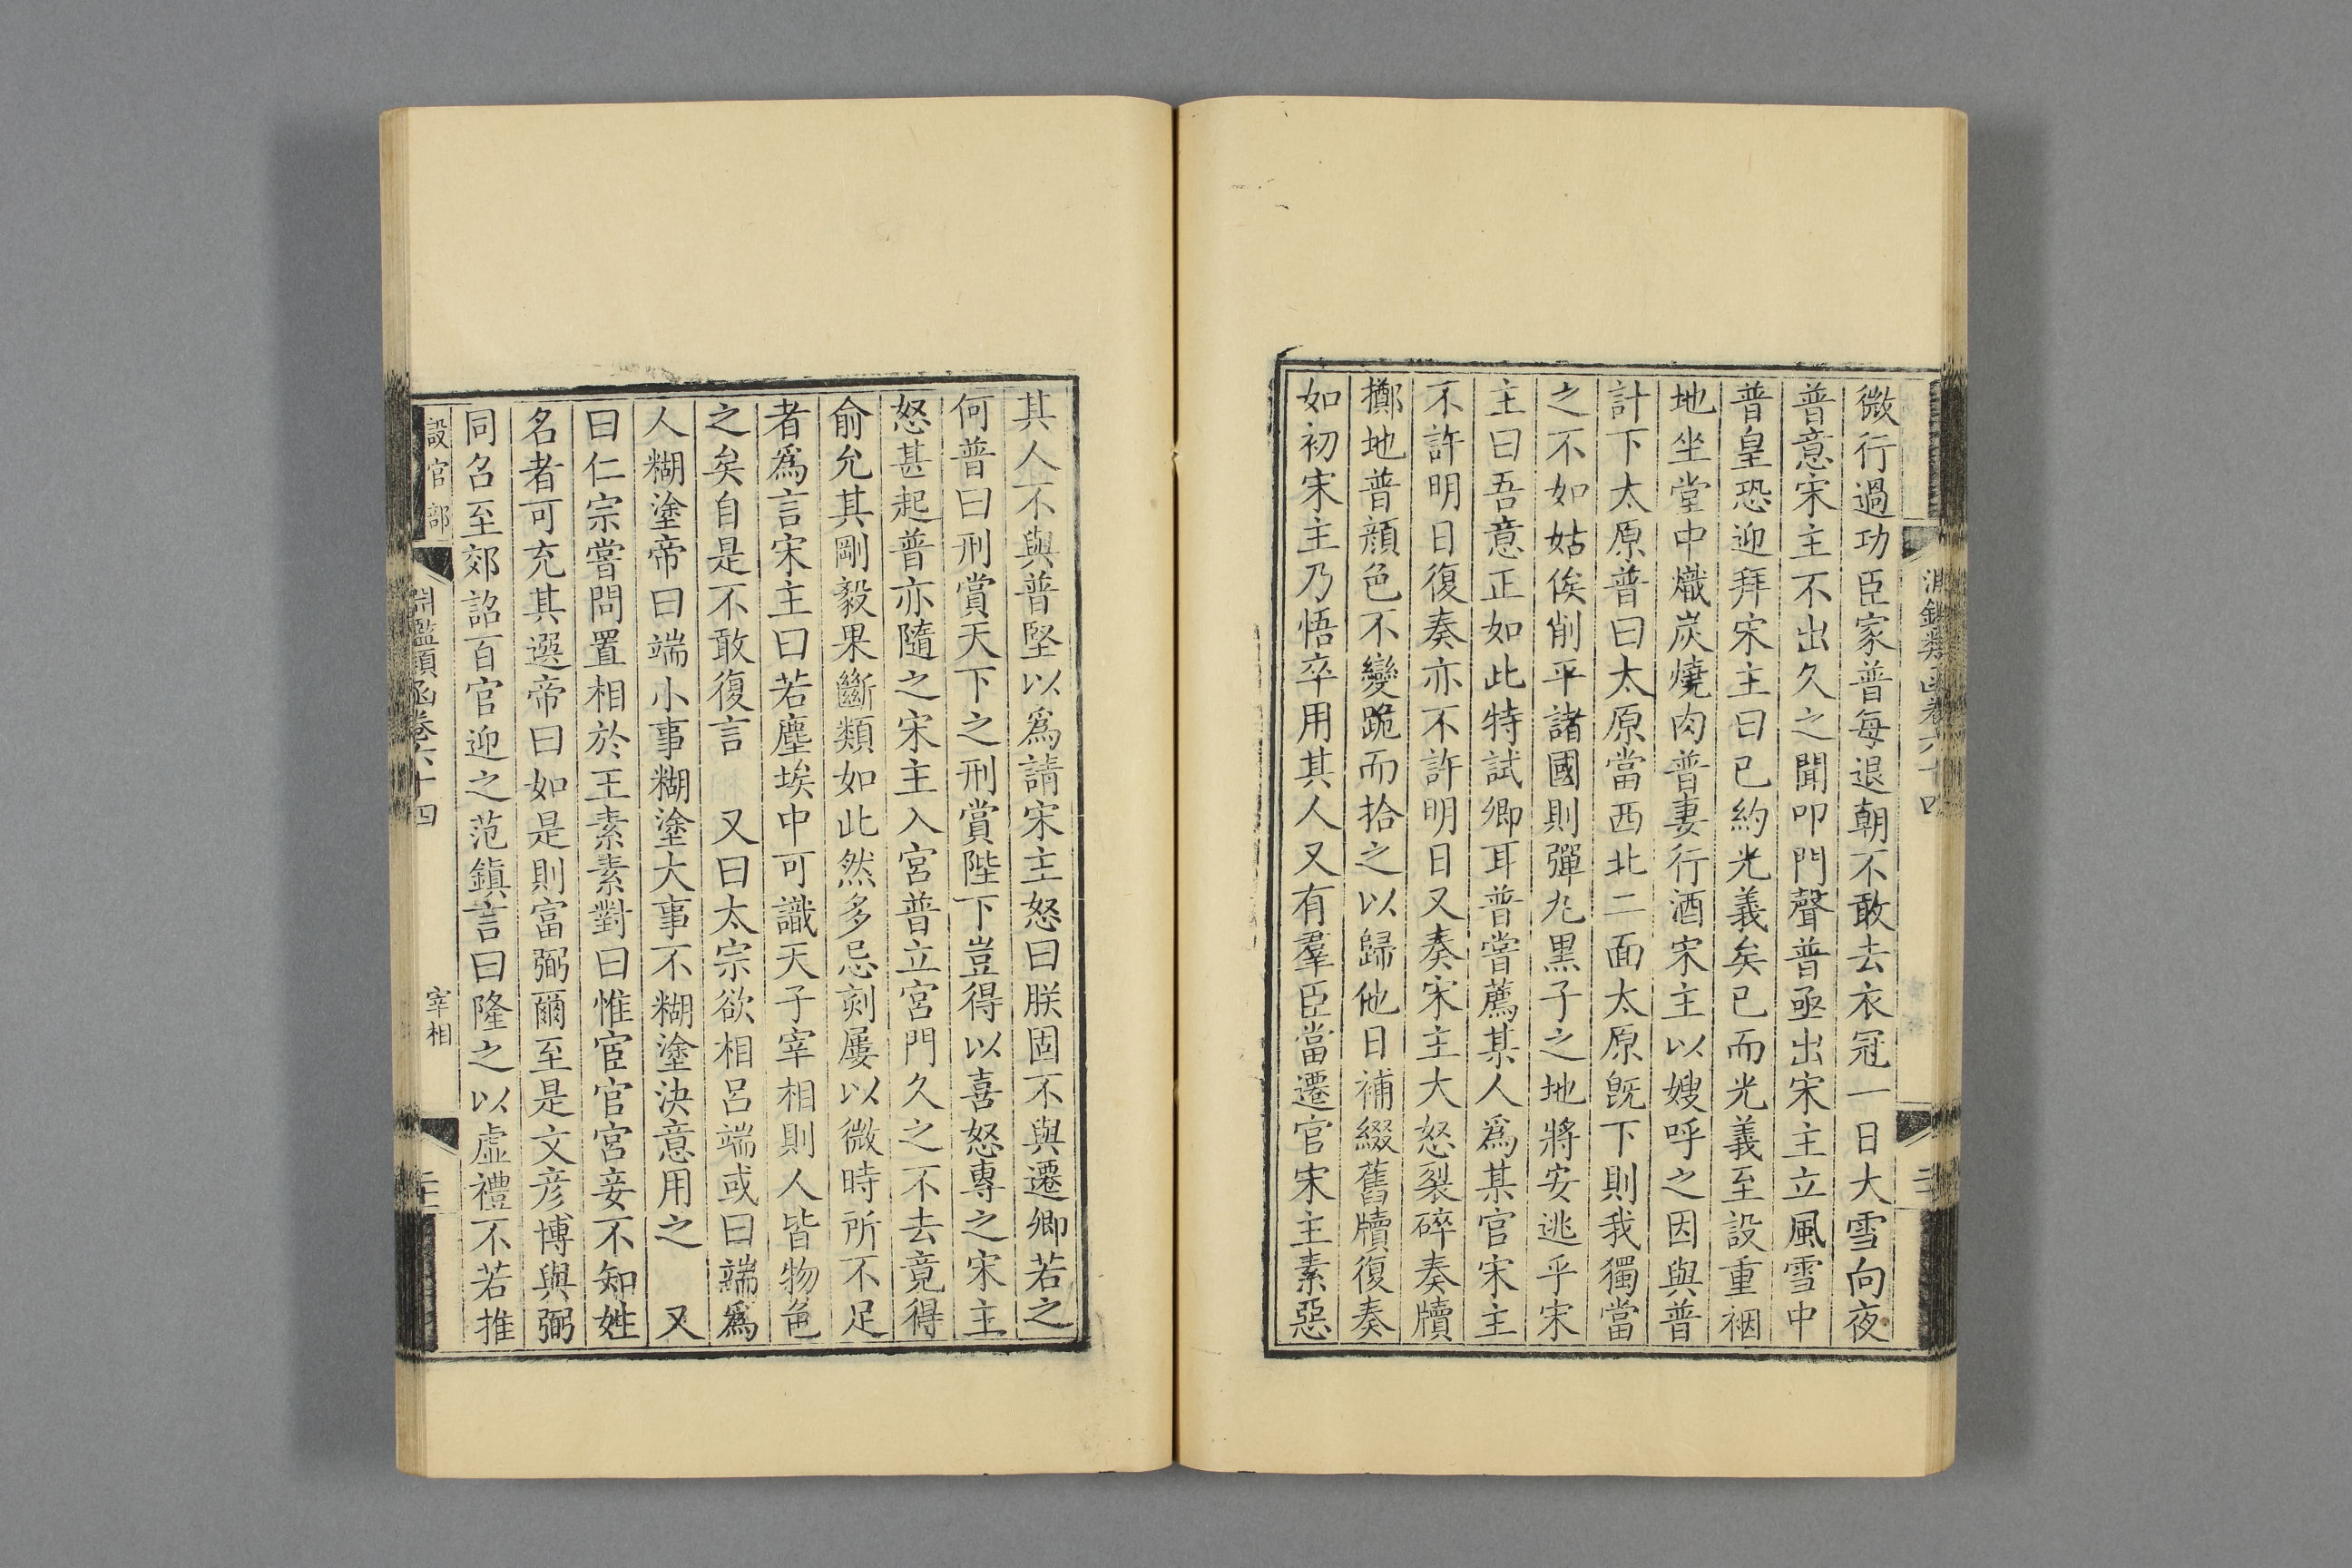 淵鑑類函卷六十四
微行過功臣家普每退朝不敢去衣冠一日大雪向夜
普意宋主不出久之聞叩門聲普亟出宋主立風雪中
普皇恐迎拜宋主曰已約光義矣已而光義至設重裀
地坐堂中熾炭燒肉普妻行酒宋主以嫂呼之因與普
計下太原普曰太原當西北二面太原旣下則我獨當
之不如姑俟削平諸國則彈丸黑子之地將安逃乎宋
主曰吾意正如此特試卿耳普嘗薦某人爲某官宋主
不許明日復奏亦不許明日又奏宋主大怒裂碎奏牘
擲地普顏色不變跪而拾之以歸他日補綴舊牘復奏
如初宋主乃悟卒用其人又有羣臣當遷官宋主素惡
其人不與普堅以爲請宋主怒曰朕固不與遷卿若之
何普曰刑賞天下之刑賞陛下豈得以喜怒專之宋主
怒甚起普亦隨之宋主入宮普立宮門久之不去竟得
俞允其剛毅果斷類如此然多忌刻屢以微時所不足
者爲言宋主曰若塵埃中可識天子宰相則人皆物色
之矣自是不敢復言　又曰太宗欲相呂端或曰端爲
人糊塗帝曰端小事糊塗大事不糊塗決意用之　又
曰仁宗嘗問置相於王素素對曰惟宦官宮妾不知姓
名者可充其選帝曰如是則富弼爾至是文彥博與弼
同名至郊詔百官迎之范鎮言曰隆之以虛禮不若推
設官部　淵鑑類函卷六十四　宰相